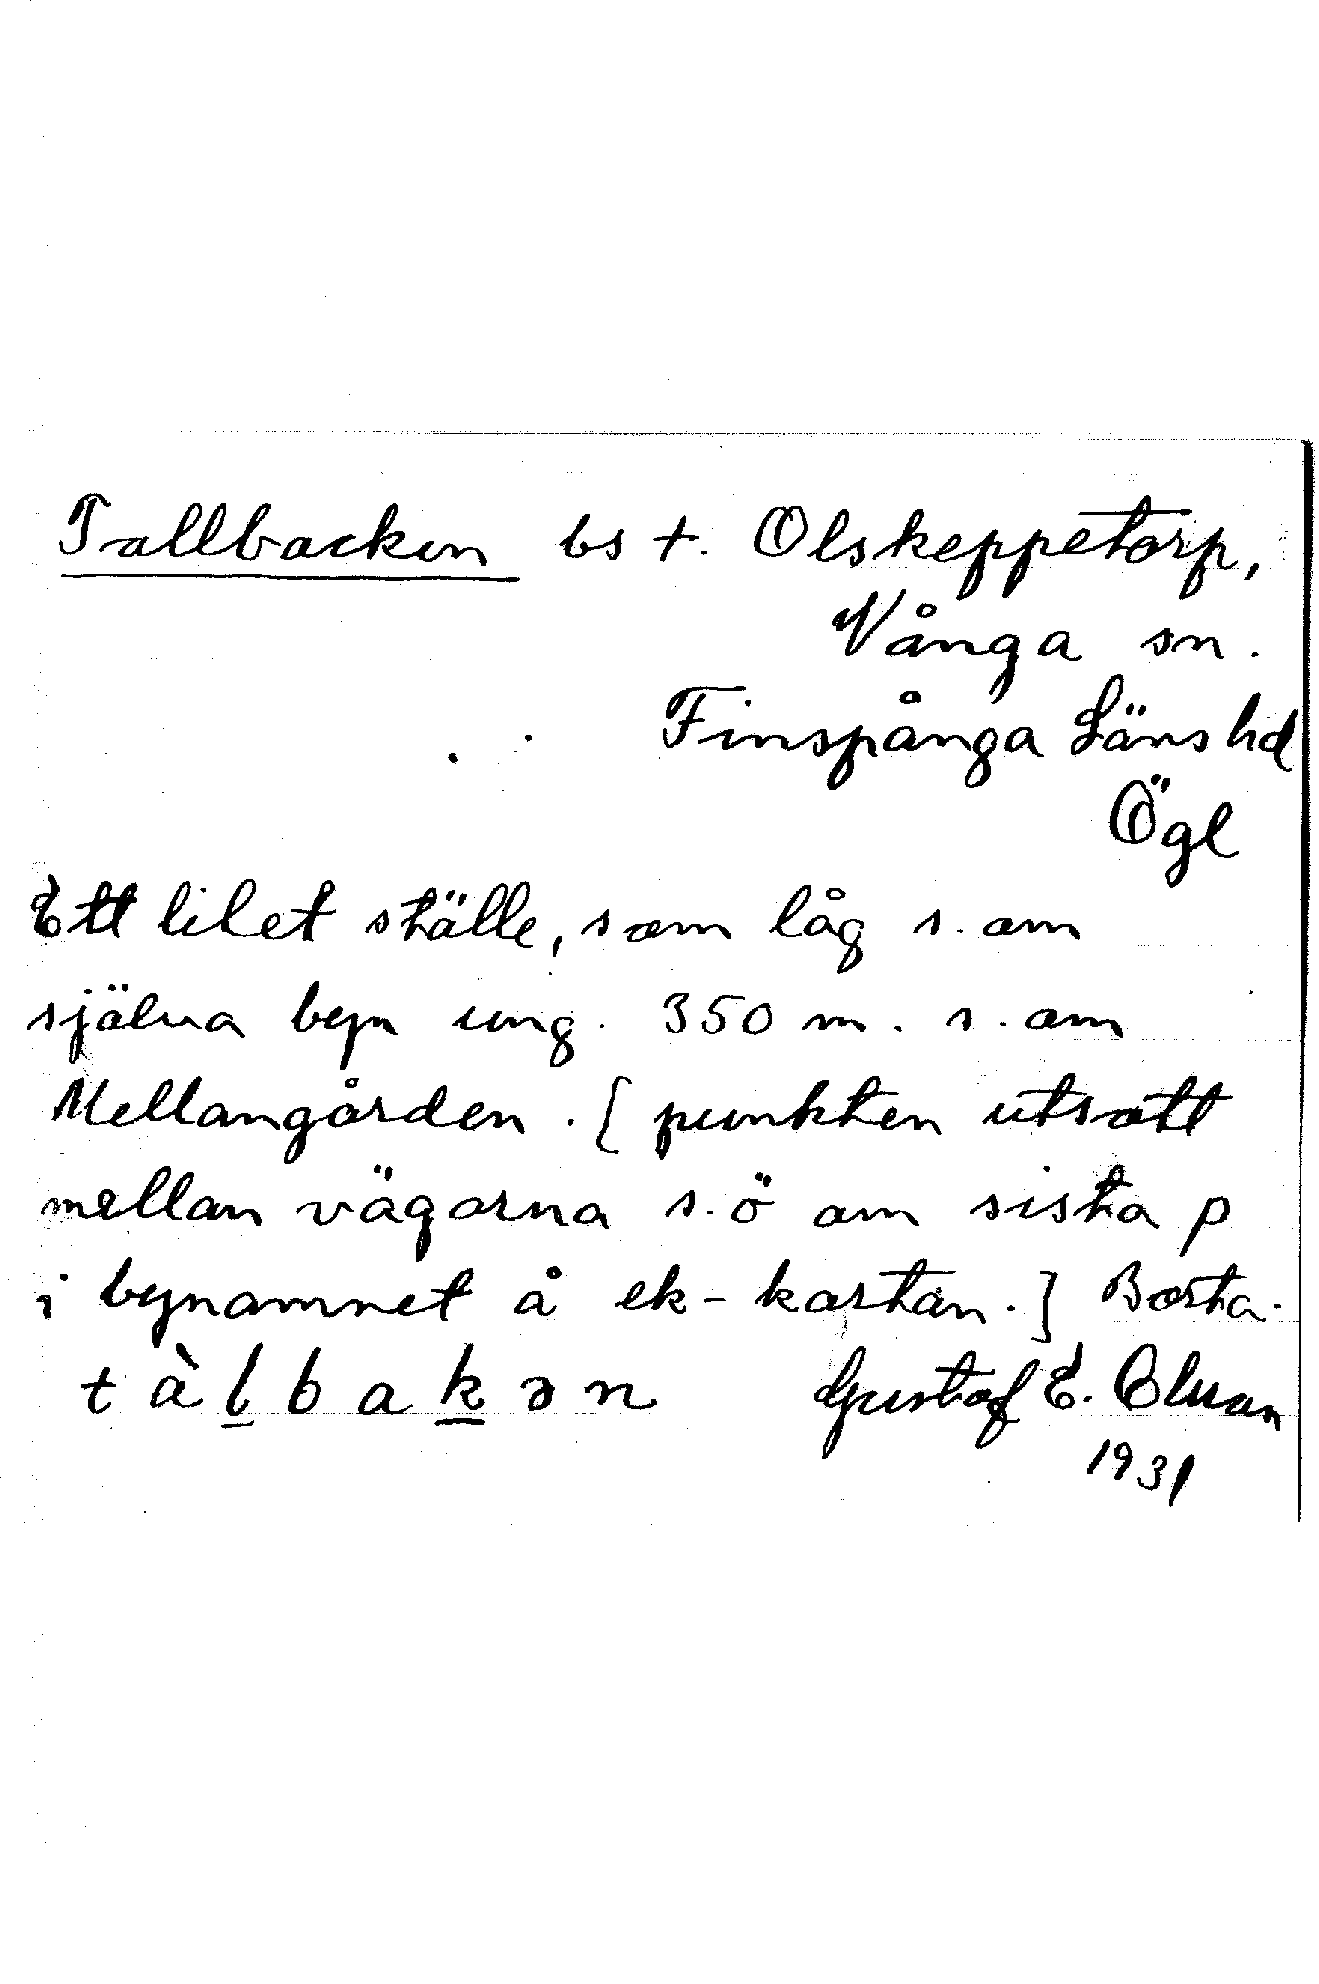 Tallbacken bs t. Olskeppetorp,
Vånga sn.
Finspånga Läns hd
Ögl
Ett litet ställe, som låg s. om
själva byn ung. 350 m. s. om
Mellangården. [punkten utsatt
mellan vägarna s.ö om sista p
i bynamnet å ek-kartan.] Borta.
tàlbakən Gustaf E. Olsson
1931